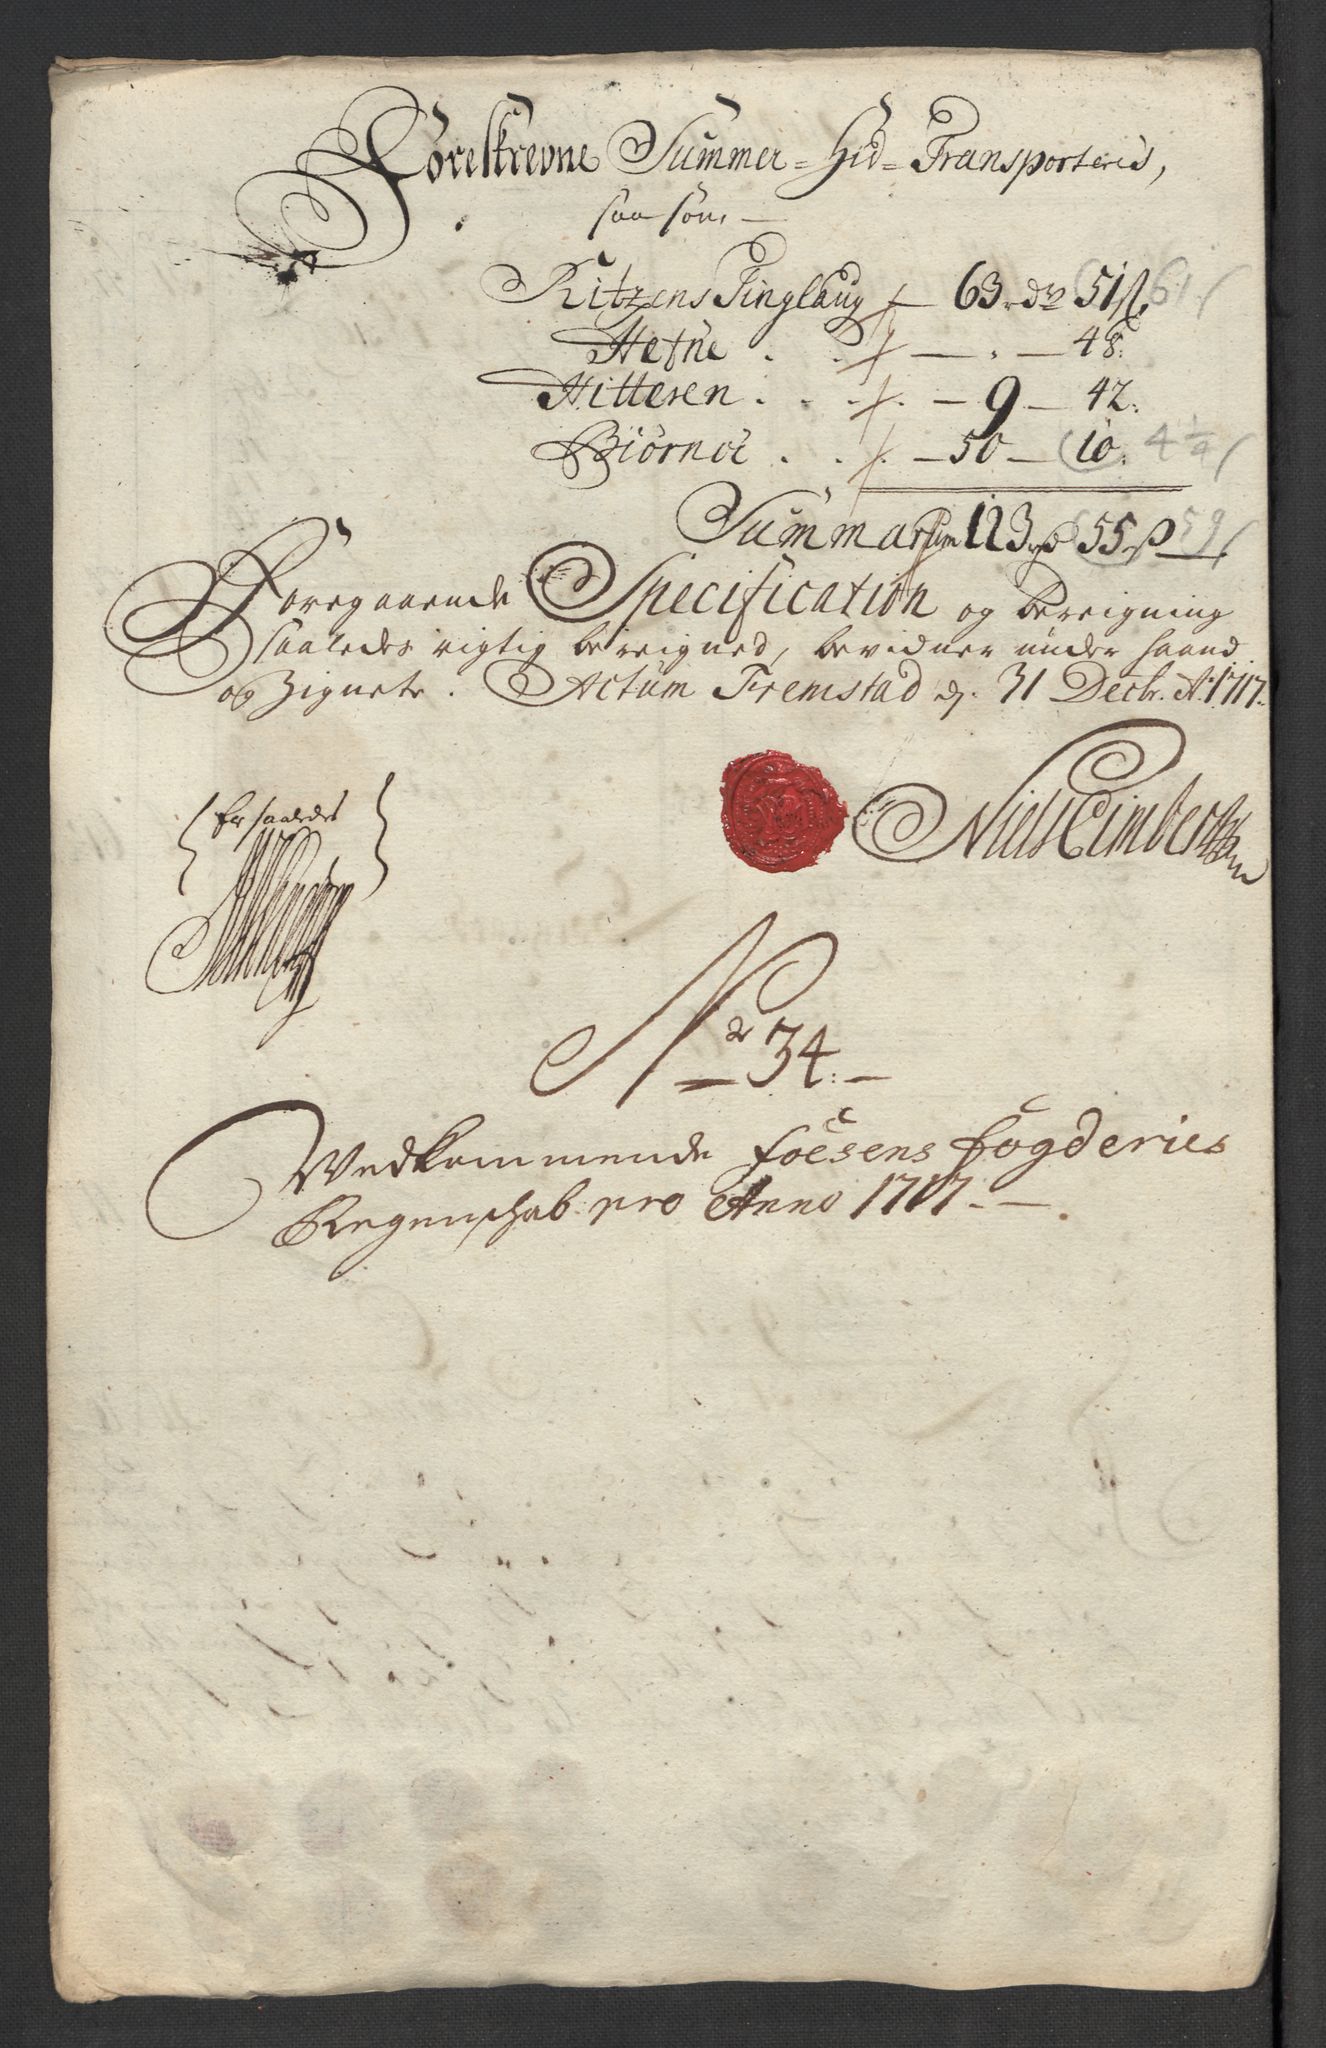 Foreskrevne Summer = Hid = Transporteris,
saasom. —
Ritzens Tinglaug — 63 rdr 51 ß. 61
Hefne . . — . — 48.
Hitteren . . . — 9 — 42.
Biörnör . . — 50 — 10. 4 1/4
Summarum 123 rd 55 ß 59
Foregaaende Specification og bereigning
saaledes rigtig bereigned, bevidner under haand
og Zignete. Actum Fremstad d. 31 Decbr. Ao 1717.
Er saaledes
Niels
No 34. —
Vedkommende Foesens fogderies
Regenschab pro Anno 1717. —.